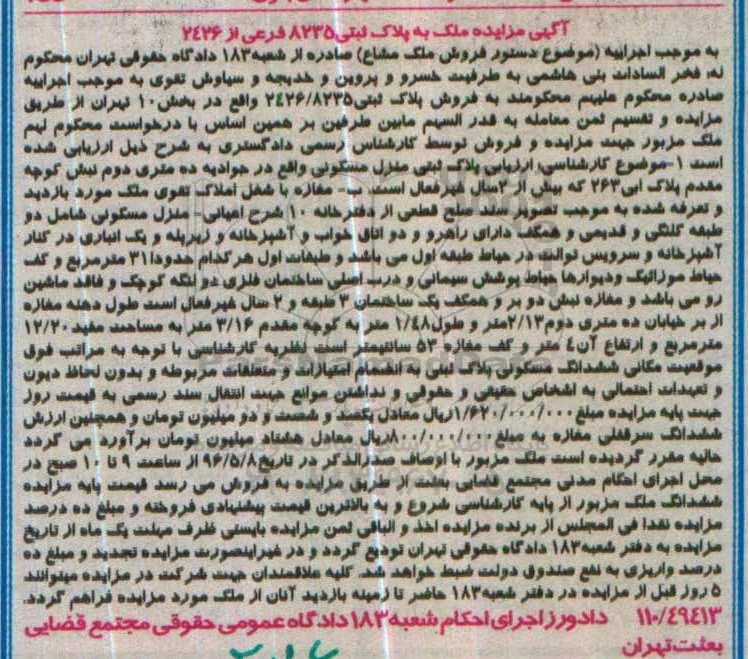 آگهی مزایده ملک به پلاک ثبتی ۸۲۳۵ فرعی از ۲۴۲۶
به موجب اجراییه (موضوع دستور فروش ملک مشاع) صادره از شعبه ۱۸۳ دادگاه حقوقی تهران محکوم
له: فخر السادات بنی هاشمی به طرفیت خسرو و پروین و خدیجه و سیاوش تقوی به موجب اجراییه
صادره محکوم علیهم محکومند به فروش پلاک ثبتی ۲۴۲۶/۸۲۳۵ واقع در بخش ۱۰ تهران از طریق
مزایده و تقسیم ثمن معامله به قدر السهم مابین طرفین بر همین اساس با درخواست محکوم لهم
ملک مزبور جهت مزایده و فروش توسط کارشناس رسمی دادگستری به شرح ذیل ارزیابی شده
است ۱-موضوع کارشناسی: ارزیابی پلاک ثبتی منزل مسکونی واقع در جوادیه ده متری دوم نبش کوچه
مقدم پلاک ابی ۲۶۳ که بیش از ۲سال غیرفعال است. ب- مغازه با شغل املاک تقوی ملک مورد بازدید
و تعرفه شده به موجب تصویر سند صلح قطعی از دفترخانه ۱۰ شرح اعیانی- منزل مسکونی شامل دو
طبقه کلنگی و قدیمی و همکف دارای راهرو و دو اتاق خواب و آشپزخانه و زیرپله و یک انباری در کنار
آشپزخانه و سرویس توالت در حیاط طبقه اول می باشد و طبقات اول هر کدام حدودا ۳۱ مترمربع و کف
حیاط موزائیک و دیوارها حیاط پوشش سیمانی و درب اصلی ساختمان فلزی دو لنگه کوچک و فاقد ماشین
رو می باشد و مغازه نبش دو بر و همکف یک ساختمان ۳ طبقه و ۲ سال غیرفعال است طول دهنه مغازه
از بر خیابان ده متری دوم ۲/۱۳متر و طول ۱/۴۸ متر به کوچه مقدم ۳/۱۶ متر به مساحت مفید ۱۲/۲۰
مترمربع و ارتفاع آن ۴ متر و کف مغازه ۵۳ سانتیمتر است نظریه کارشناسی با توجه به مراتب فوق
موقعیت مکانی ششدانگ مسکونی پلاک ثبتی به انضمام امتیازات و متعلقات مربوطه و بدون لحاظ دیون
و تعهدات احتمالی به اشخاص حقیقی و حقوقی و نداشتن موانع جهت انتقال سند رسمی به قیمت روز
جهت پایه مزایده مبلغ ۱/۶۲۰/۰۰۰/۰۰۰ریال معادل یکصد و شصت و دو میلیون تومان و همچنین ارزش
ششدانگ سرقفلی مغازه به مبلغ ۸۰۰/۰۰۰/۰۰۰ریال معادل هشتاد میلیون تومان برآورد می گردد
حالیه مقرر گردیده است ملک مزبور با اوصاف صدرالذکر در تاریخ ۹۶/۵/۸ از ساعت ۹ تا ۱۰ صبح در
محل اجرای احکام مدنی مجتمع قضایی بعثت از طریق مزایده به فروش می رسد قیمت پایه مزایده
ششدانگ ملک مزبور از پایه کارشناسی شروع و به بالاترین قیمت پیشنهادی فروخته و مبلغ ده درصد
مزایده نقدا فی المجلس از برنده مزایده اخذ و الباقی ثمن مزایده بایستی ظرف مهلت یک ماه از تاریخ
مزایده به دفتر شعبه ۱۸۳ دادگاه حقوقی تهران تودیع گردد و در غیراینصورت مزایده تجدید و مبلغ ده
درصد واریزی به نفع صندوق دولت ضبط خواهد شد. کلیه علاقمندان جهت شرکت در مزایده میتوانند
۵ روز قبل از مزایده در دفتر شعبه ۱۸۳ حاضر تا زمینه بازدید آنان از ملک مورد مزایده فراهم گردد.
۱۱۰/۴۹۴۱۳ دادورز اجرای احکام شعبه ۱۸۳ دادگاه عمومی حقوقی مجتمع قضایی
بعثت تهران